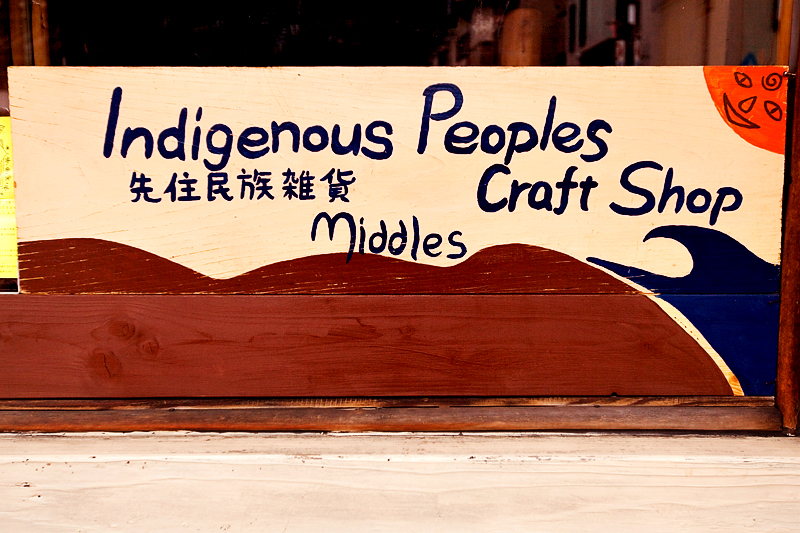 Indigenous Peoples
先住民族雑貨
Craft Shop
Middles